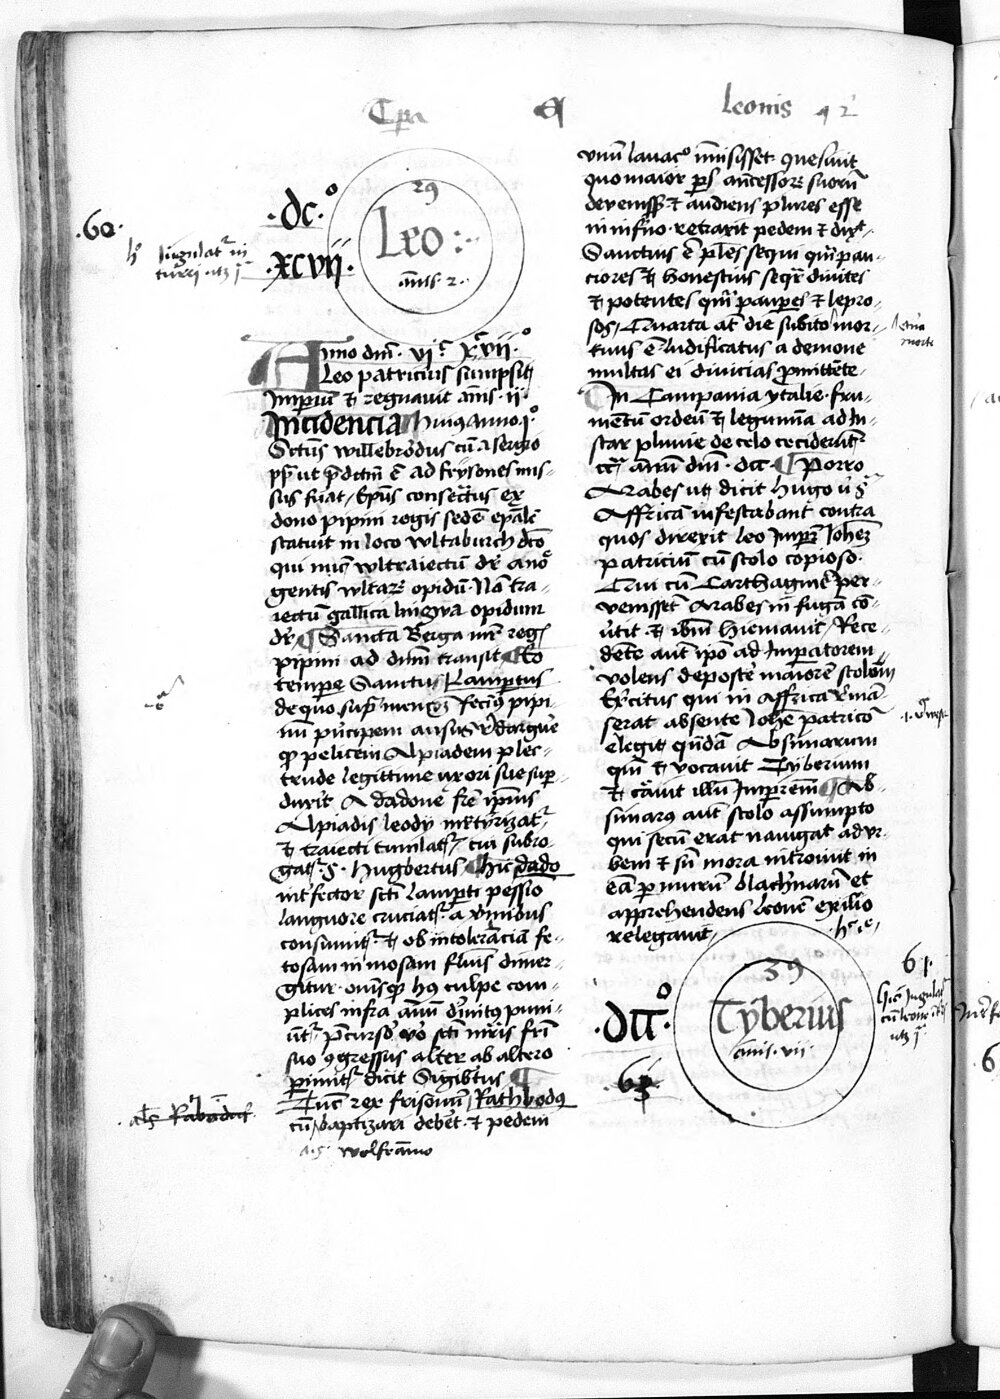 Tpa
Leonis 2
60
dc
xcvii
29
Leo
Annis 2
Anno dni vi c xcvii
Leo patricius sumpsit
Imperiu et regnavit annis ii
Incidencia huius anno i
Sctus willebrodus cu a sergio
pp ut pdctm e ad frysones mis-
sus fuat Epus consecratus ex
dono pipini regis sede epale
statuit in loco wltaburch dcto
qui nunc wltraiectu dr a noie
gentis wltar opidu Nam tra-
iectu gallica lingwa opidum
dr Sancta Berga mr regis
pipini ad dnm transit Eo
tempe Sanctus Lamptus
de quo sup mencio fecimus pipi-
num principem ausus redarguere
q pelicem Alpiadem plec-
trude legittime uxori sue sup-
duxit A dadone fre ipius
Alpiadis leody mrtyrizatr
et traiecti tumulatr cui subro-
gatr s hugbertus Hic dado
intfector scti lamperti pessio
languore cruciatr a vmibus
consumitr et ob intoleranciam fe-
tosam in mosam fluvius dimer-
gitur omisq hus culpe com-
plices infra annum divinitus puni-
untr percurso vero scti miris frm
suo congressus alter ab altero
perimitr dicit Sigibtus
Tunc rex frisonum Rathbodus
cum baptizari deberet et pedem
a s wolframo
als Rabodus
unum lavacro immisisset quesivit
quo maior pars antecessor suorum
devenisset et audiens plures esse
in inferno retraxit pedem et dixit
Sanctius e plures sequi quam pau-
ciores et honestius sequi divites
et potentes quam pauperes et lepro-
sos Quarta autem die subito mor-
tuus e ludificatus a demone
multas ei divicias promittente
In Campania ytalie fru-
mentum ordeum et legumina ad In-
star pluvie de celo ceciderunt
circa annum dni dcc Porro
Arabes ut dicit hugo
Affricam infestabant contra
quos direxit leo Imperator Iohem
patricium cum stolo copioso
Qui cum Carthaginem per-
venisset Arabes in fugam con-
vertit et ibidem hiemavit Rece-
dente autem ipo ad Imperatorem
volens deposcere maiorem stolum
Exercitus qui in affrica reman-
serat absente Iohe patricio
elegit quendam Absimarum
quem et vocavit Tyberium
et creavit illum Imperatorem Ab-
simarus autem stolo assumpto
qui secum erat navigat ad ur-
bem et sine mora introivit in
eam per murum blachernarum et
apprehendens leonem exilio
relegavit
dcc
39
Tyberius
annis vii
61